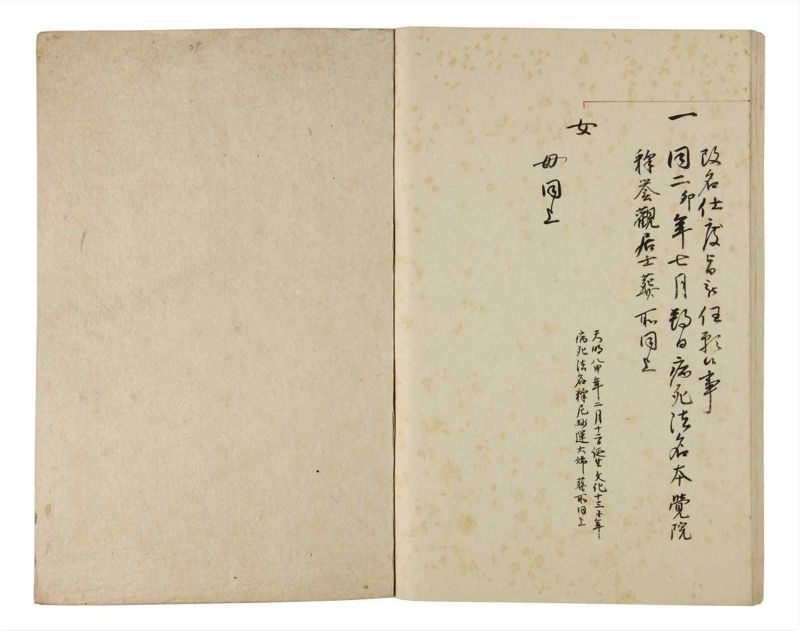 改名仕度旨被任願候事
一 同二卯年七月 日病死法名本覺院
釋誉觀居士葬所同上
女
天明八申年二月十二日誕生文化十三子年
病死法名釋尼妙運大姉葬所同上
母同上